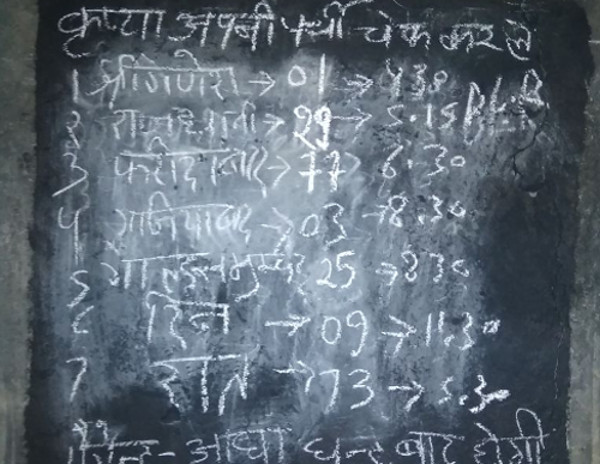 कृप्या अपनी पर्ची चेक कर ले
1 श्री गणेश → 01 → 4.30
2 राजधानी → 29 → 5.15
3 फरीदाबाद → 77 → 6.30
4 गाजियाबाद → 03 → 8.30
5 25 → 8.30
6 दिन → 09 → 11.30
7 रात → 73 → 5.30
- आधा घन्टे बाद होगी